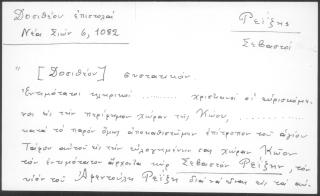 Δοσιθέου ἐπιστολαί
Ρείζης
Νέα Σιών 6, 1082
Σεβαστοί
" [Δοσιθέου] συστατικόν.
Ἐντιμότατοι κληρικοί ...... χριστιανοί οἱ εὑρισκόμε-
νοι εἰς τὴν περίφημον χώραν τῆς Κίου, ......
κατὰ τὸ παρὸν ὅμως ἀποκαθιστῶμεν ἐπίτροπον τοῦ ἁγίου
Τάφου αὐτοῦ εἰς τὴν εὐλογημένην σας χώραν Κίου
τὸν ἐντιμότατον ἄρχοντα κὺρ Σεβαστὸν Ρείζην, τὸν
υἱὸν τοῦ Ρείζη διὰ νὰ εἶναι εἰς τὰ